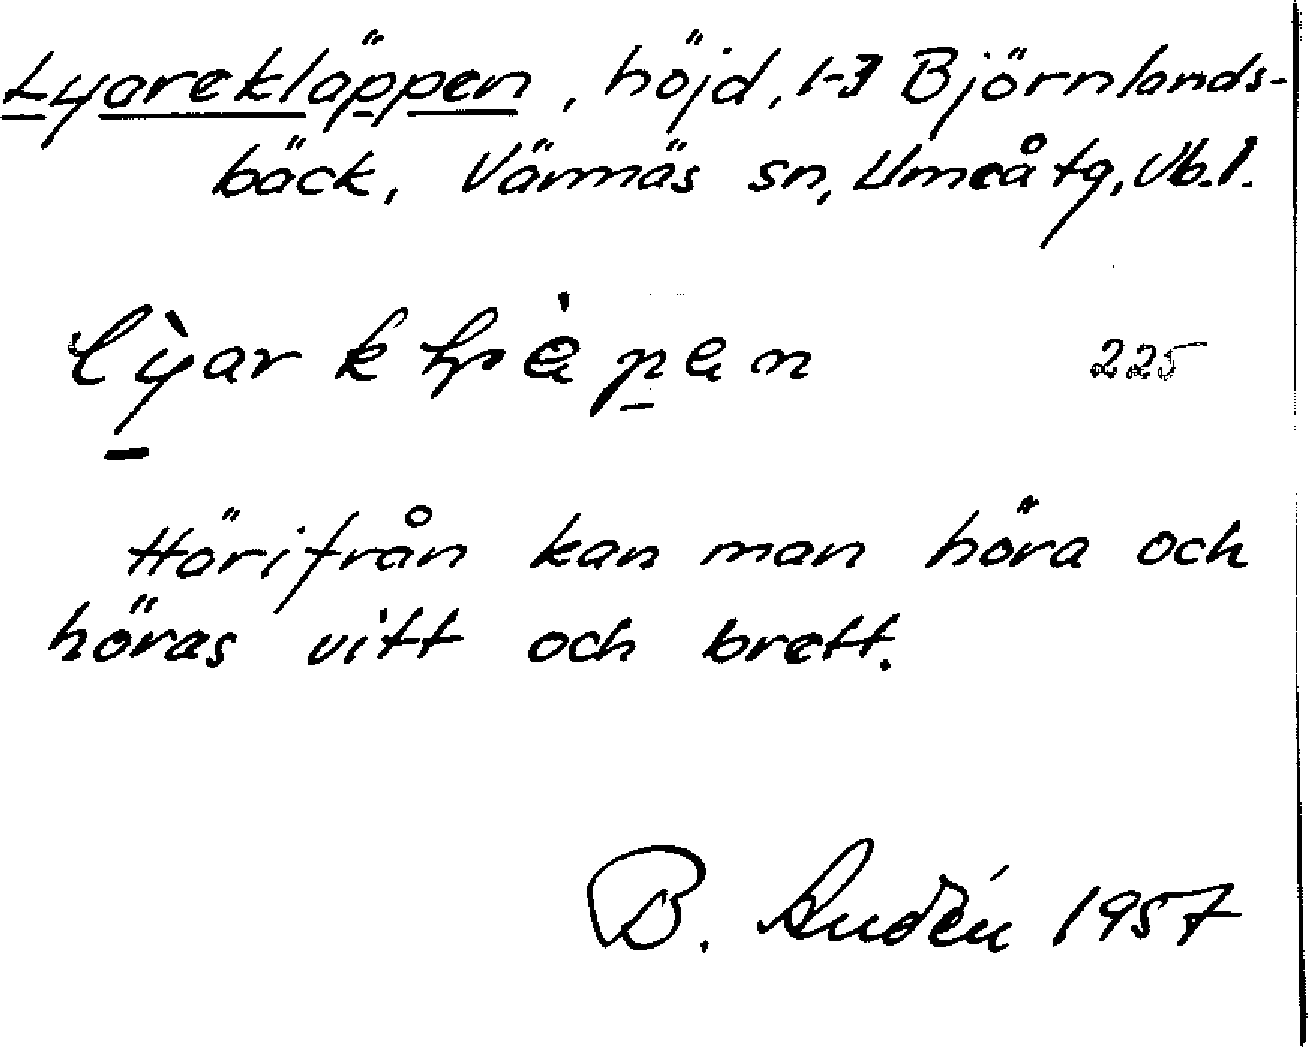 Lyarekläppen, höjd, 1-3 Björnlands-
bäck, Vännäs sn, Umeå tg, Vb.l.
225
Härifrån kan man höra och
höras vitt och brett.
B. 1957